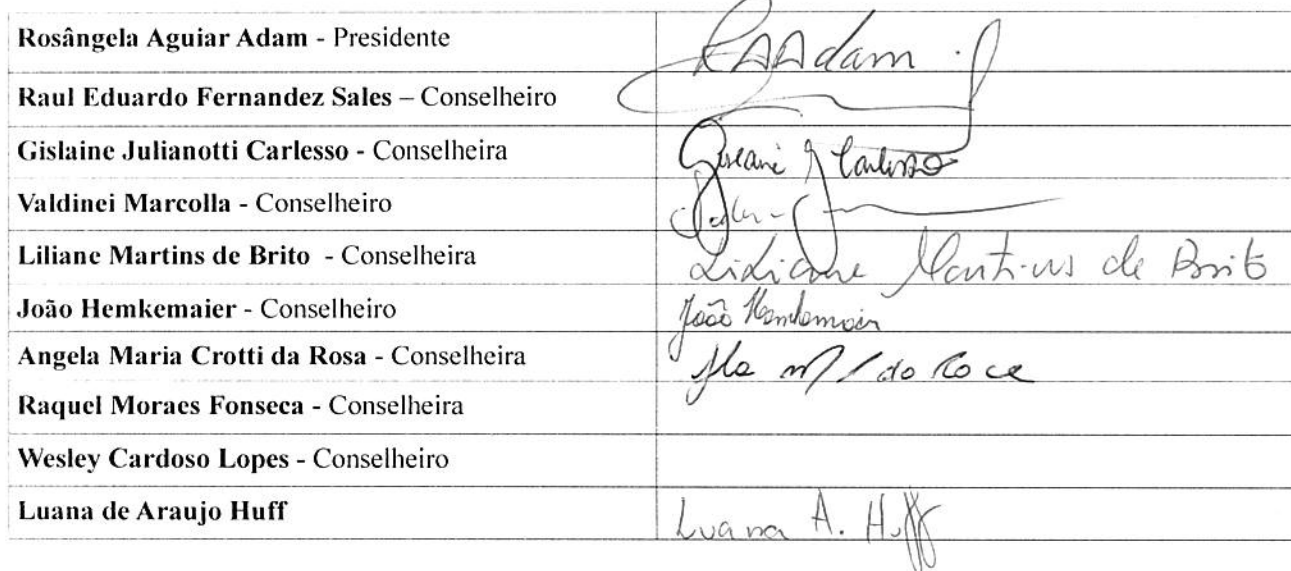 Rosângela Aguiar Adam - Presidente RAAdam
Raul Eduardo Fernandez Sales – Conselheiro
Gislaine Julianotti Carlesso - Conselheira Gislaine J Carlesso
Valdinei Marcolla - Conselheiro
Liliane Martins de Brito - Conselheira Lidiane Martins de Brito
João Hemkemaier - Conselheiro João Hemkemaier
Angela Maria Crotti da Rosa - Conselheira
Raquel Moraes Fonseca - Conselheira
Wesley Cardoso Lopes - Conselheiro
Luana de Araujo Huff Luana A. Huff